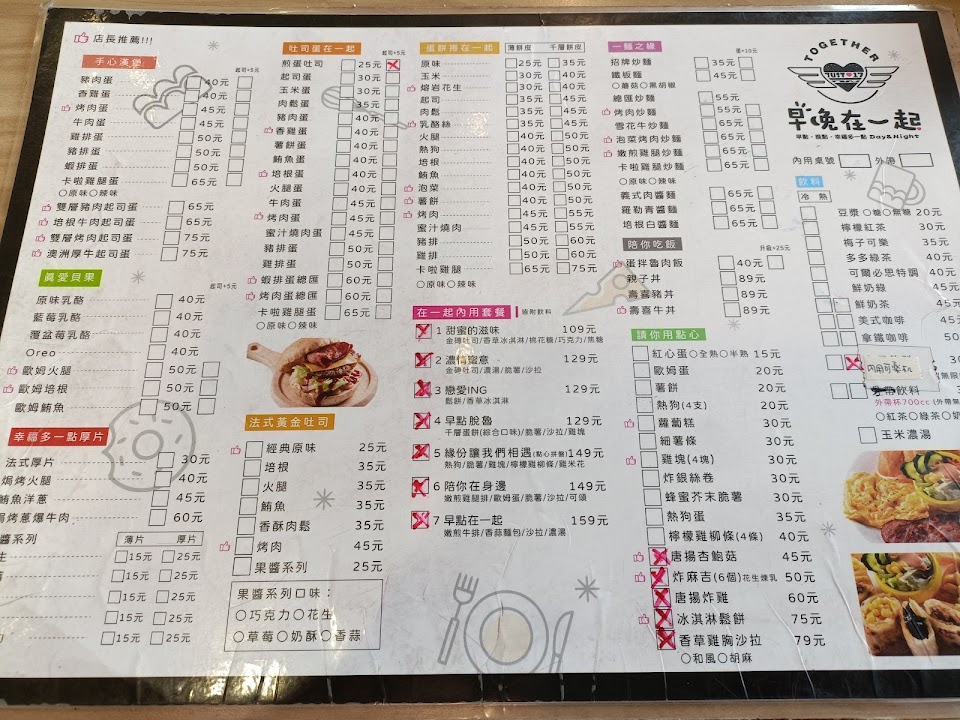 店長推薦!!!
手心漢堡
起司+5元
豬肉蛋 40元
香雞蛋 40元
烤肉蛋 45元
牛肉蛋 45元
雞排蛋 50元
豬排蛋 50元
蝦排蛋 50元
卡啦雞腿蛋 65元
○原味○辣味
雙層豬肉起司蛋 65元
培根牛肉起司蛋 65元
雙層烤肉起司蛋 75元
澳洲厚牛起司蛋 75元
真愛貝果
起司+5元
原味乳酪 40元
藍莓乳酪 40元
覆盆莓乳酪 40元
Oreo 40元
歐姆火腿 50元
歐姆培根 50元
歐姆鮪魚 50元
幸福多一點厚片
法式厚片 30元
焗烤火腿 40元
鮪魚洋蔥 45元
焗烤蔥爆牛肉 60元
醬系列 薄片 厚片
生 15元 25元
15元 25元
15元 25元
15元 25元
吐司蛋在一起
起司+5元
煎蛋吐司 25元
起司蛋 30元
玉米蛋 30元
肉鬆蛋 35元
豬肉蛋 40元
香雞蛋 40元
薯餅蛋 40元
鮪魚蛋 40元
培根蛋 40元
火腿蛋 40元
牛肉蛋 45元
烤肉蛋 45元
蜜汁燒肉蛋 45元
豬排蛋 50元
雞排蛋 50元
蝦排蛋總匯 60元
烤肉蛋總匯 60元
卡啦雞腿蛋 65元
○原味○辣味
法式黃金吐司
經典原味 25元
培根 35元
火腿 35元
鮪魚 35元
香酥肉鬆 35元
烤肉 45元
果醬系列 25元
果醬系列口味：
○巧克力○花生
○草莓○奶酥○香蒜
蛋餅捲在一起 薄餅皮 千層餅皮
原味 25元 35元
玉米 30元 40元
熔岩花生 30元 40元
起司 30元 40元
肉鬆 30元 40元
乳酪絲 35元 45元
熱狗 35元 45元
培根 40元 50元
鮪魚 40元 50元
泡菜 40元 50元
薯餅 40元 50元
烤肉 45元 55元
蜜汁燒肉 45元 55元
豬排 50元 60元
雞排 50元 60元
卡啦雞腿 65元 75元
○原味○辣味
在一起內用套餐 皆附飲料
1 甜蜜的滋味 109元
金磚吐司/香草冰淇淋/棉花糖/巧克力/焦糖
2 濃情蜜意 129元
金磚吐司/濃湯/脆薯/沙拉
3 戀愛ING 129元
鬆餅/香草冰淇淋
4 早點脫魯 129元
千層蛋餅(綜合口味)/脆薯/沙拉/雞塊
5 緣份讓我們相遇(點心拼盤) 149元
熱狗/脆薯/雞塊/檸檬雞柳條/雞米花
6 陪你在身邊 149元
嫩煎雞腿排/歐姆蛋/脆薯/沙拉/可頌
7 早點在一起 159元
嫩煎牛排/香蒜麵包/沙拉/濃湯
一麵之緣
蛋+10元
招牌炒麵 35元
鐵板麵 45元
○蘑菇○黑胡椒
總匯炒麵 55元
烤肉炒麵 55元
雪花牛炒麵 65元
泡菜烤肉炒麵 65元
嫩煎雞腿炒麵 65元
卡啦雞腿炒麵 65元
○原味○辣味
義式肉醬麵 65元
羅勒青醬麵 65元
培根白醬麵 65元
陪你吃飯
升級+25元
蛋拌魯肉飯 40元
親子丼 89元
壽喜豬丼 89元
壽喜牛丼 89元
請你用點心
紅心蛋○全熟○半熟 15元
歐姆蛋 20元
薯餅 20元
熱狗(4支) 20元
蘿蔔糕 30元
細薯條 30元
雞塊(4塊) 30元
炸銀絲卷 30元
蜂蜜芥末脆薯 35元
熱狗蛋 35元
檸檬雞柳條(4條) 40元
唐揚杏鮑菇 45元
炸麻吉(6個)花生煉乳 50元
唐揚炸雞 60元
冰淇淋鬆餅 75元
香草雞胸沙拉 79元
○和風○胡麻
TOGETHER
JUST 17
早晚在一起
早點・晚點・幸福多一點 Day&Night
內用桌號 外帶
飲料
冷 熱
豆漿○糖○無糖 20元
檸檬紅茶 30元
梅子可樂 35元
多多綠茶 40元
可爾必思特調 40元
鮮奶綠 45元
鮮奶茶 45元
美式咖啡 45元
拿鐵咖啡
內用可樂杯
外帶飲料
外帶杯700cc
○紅茶○綠茶
玉米濃湯